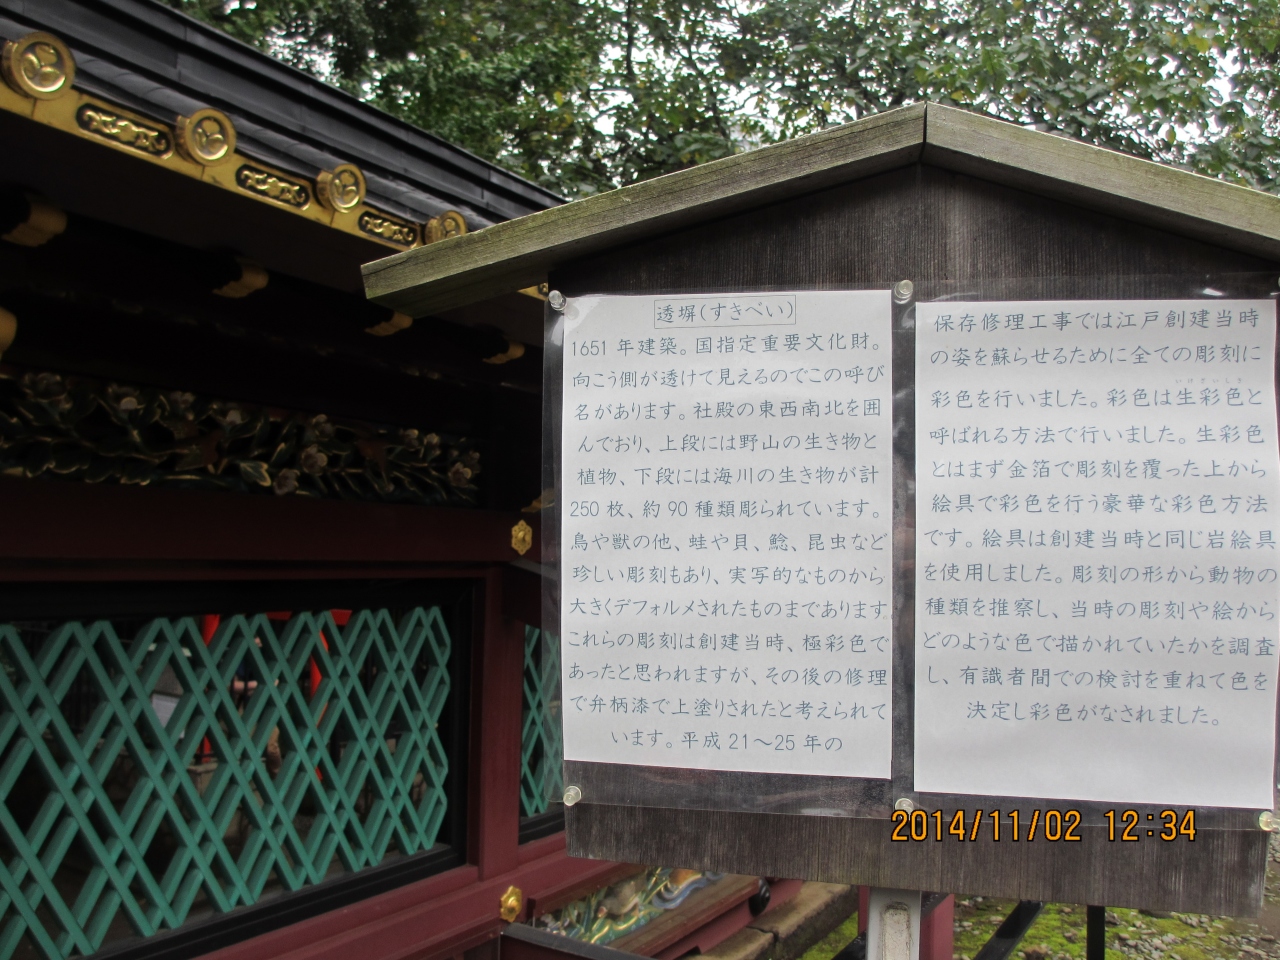 透塀(すきべい)
1651年建築。国指定重要文化財。
向こう側が透けて見えるのでこの呼び
名があります。社殿の東西南北を囲
んでおり、上段には野山の生き物と
植物、下段には海川の生き物が計
250枚、約90種類彫られています。
鳥や獣の他、蛙や貝、鯰、昆虫など
珍しい彫刻もあり、実写的なものから
大きくデフォルメされたものまであります。
これらの彫刻は創建当時、極彩色で
あったと思われますが、その後の修理
で弁柄漆で上塗りされたと考えられて
います。平成21～25年の
保存修理工事では江戸創建当時
の姿を蘇らせるために全ての彫刻に
いけざいしき
彩色を行いました。彩色は生彩色と
呼ばれる方法で行いました。生彩色
とはまず金箔で彫刻を覆った上から
絵具で彩色を行う豪華な彩色方法
です。絵具は創建当時と同じ岩絵具
を使用しました。彫刻の形から動物の
種類を推察し、当時の彫刻や絵から
どのような色で描かれていたかを調査
し、有識者間での検討を重ねて色を
決定し彩色がなされました。
2014/11/02 12:34